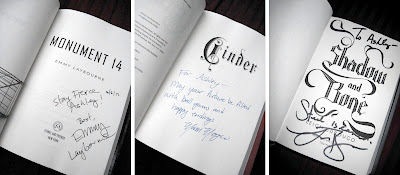 MONUMENT 14
EMMY LAYBOURNE
Stay Fierce,
Ashley!
Best,
Emmy
Laybourne
Cinder
For Ashley—
May your future be filled
with ball gowns and
happy endings
To Ashley
Shadow
and
Bone